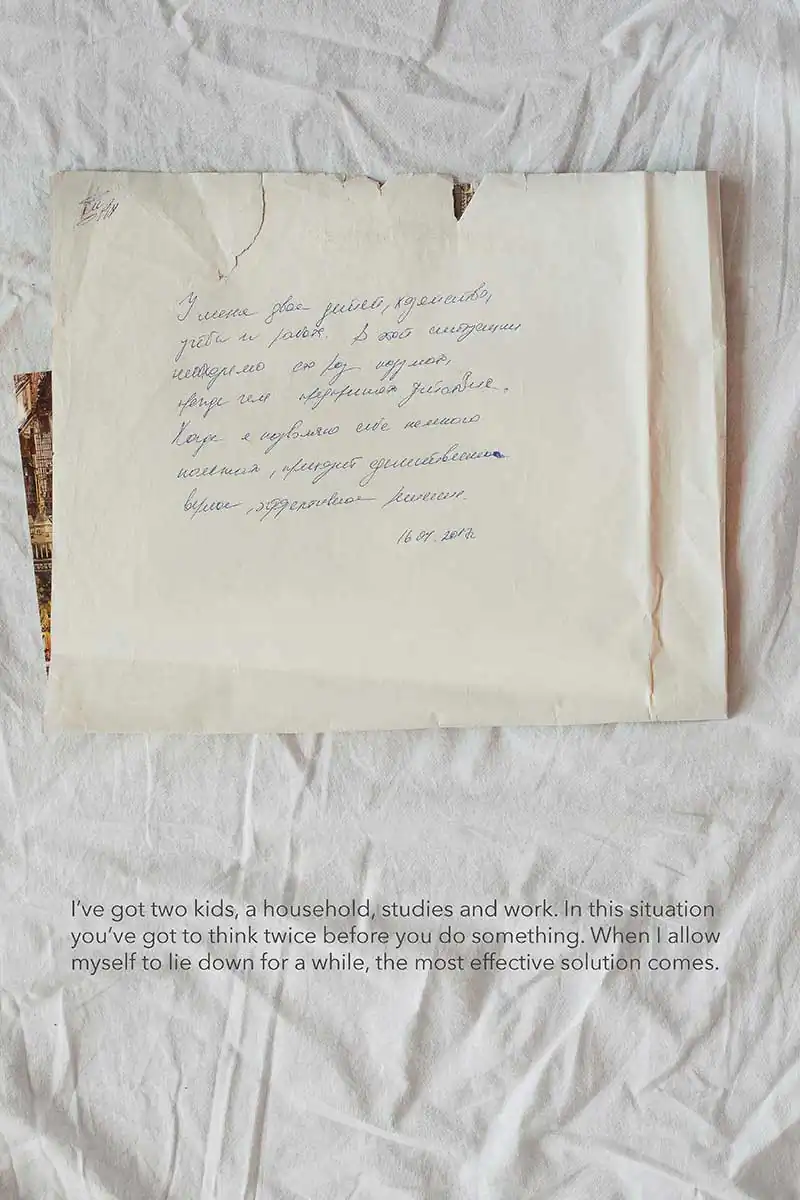 У меня двое детей, хозяйство,
учеба и работа. В этой ситуации
необходимо сто раз подумать,
прежде чем предпринять действие.
Когда я позволяю себе немного
полежать, приходит единственное
верное, эффективное решение.
16.04.2017г.
I’ve got two kids, a household, studies and work. In this situation
you’ve got to think twice before you do something. When I allow
myself to lie down for a while, the most effective solution comes.